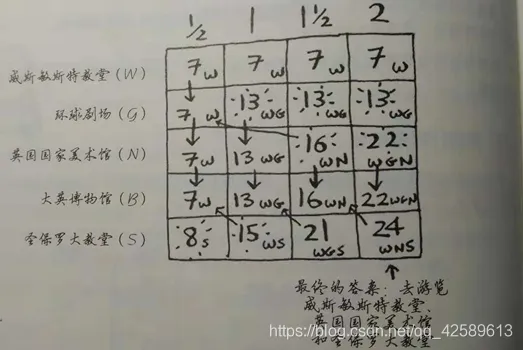 1/2 1 1 1/2 2
威斯敏斯特教堂 (W) 7W 7W 7W 7W
环球剧场 (G) 7W 13WG 13WG 13WG
英国国家美术馆 (N) 7W 13WG 16WN 22WGN
大英博物馆 (B) 7W 13WG 16WN 22WGN
圣保罗大教堂 (S) 8S 15WS 21WGS 24WNS
最终的答案: 去游览
威斯敏斯特教堂、
英国国家美术馆
和圣保罗大教堂
https://blog.csdn.net/qq_42589613